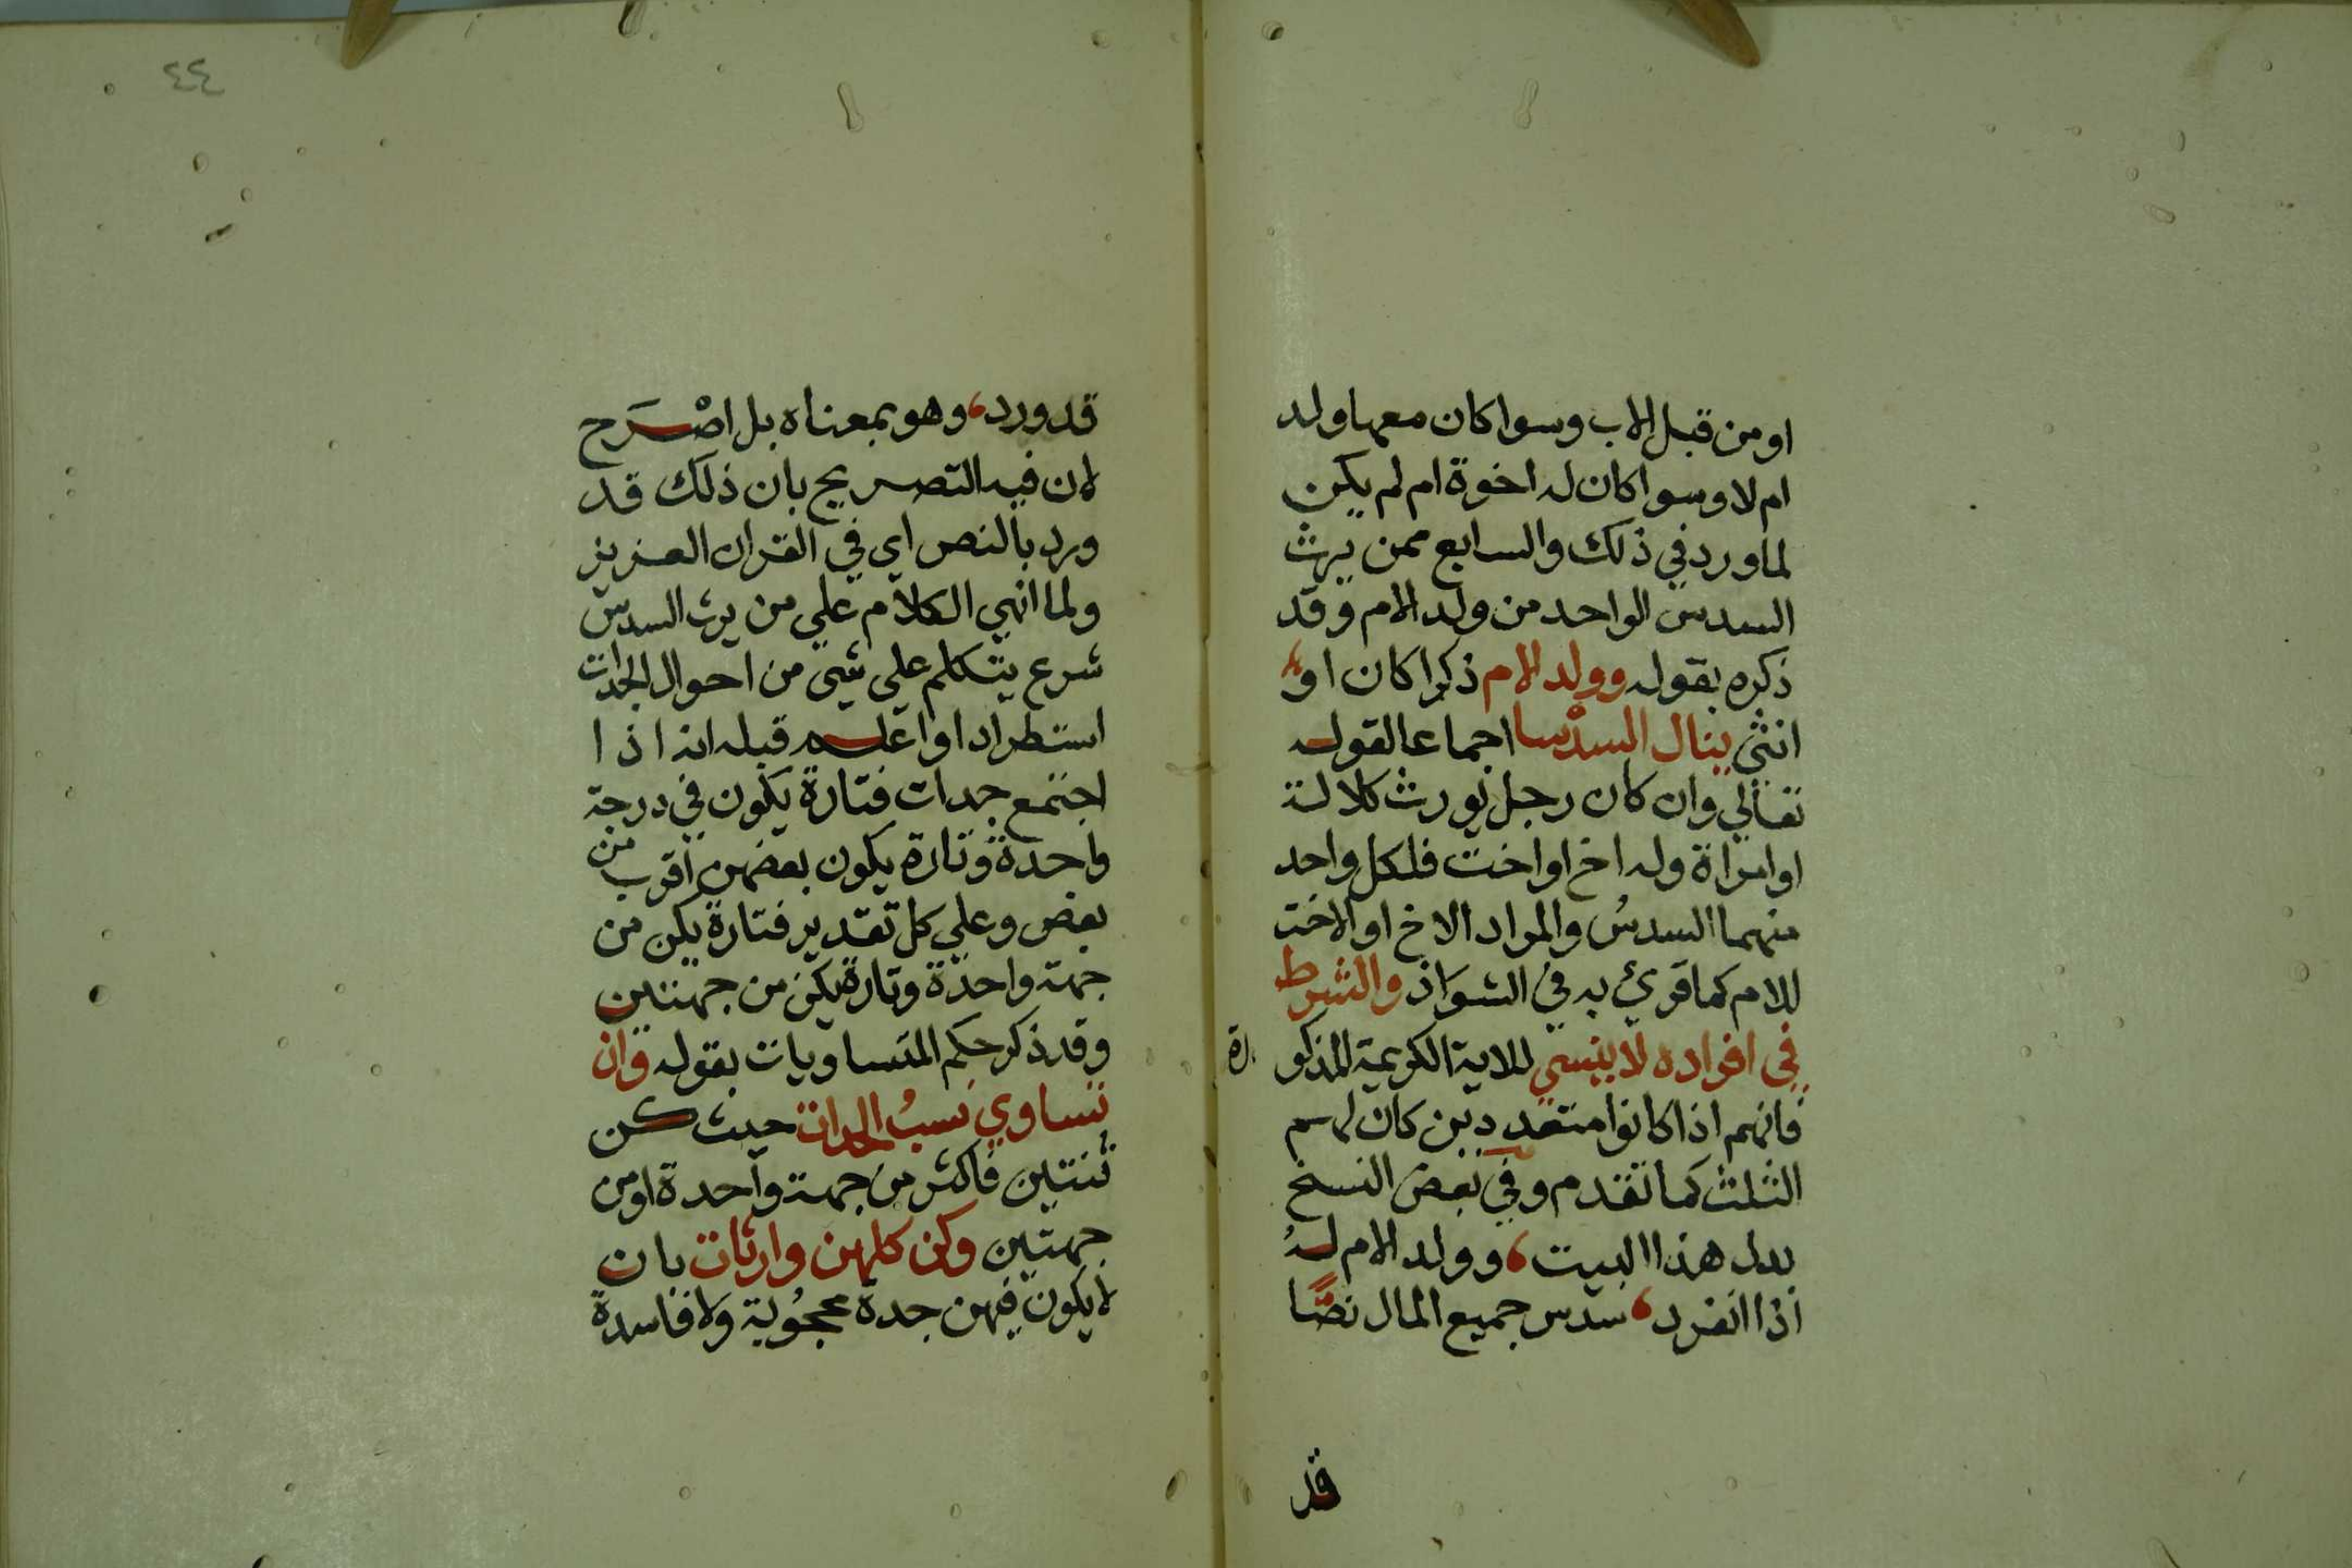 او من قبل الاب وسوا كان معها ولد
ام لا وسوا كان له اخوة ام لم يكن
لما ورد في ذلك والسابع ممن يرث
السدس الواحد من ولد الام وقد
ذكره بقوله وولد الام ذكرا كان او
انثي ينال السدسا اجماعا لقوله
تعالي وان كان رجل يورث كلالة
او امراة وله اخ او اخت فلكل واحد
منهما السدسُ والمراد الاخ او الاخت
للام كما قرئ به في الشواذ والشرط
في افراده لا ينسي للاية الكريمة المذكورة
فانهم اذا كانوا متعددين كان لهم
الثلث كما تقدم وفي بعض النسخ
بدل هذا البيت، وولد الام له
اذا انفرد، سدس جميع المال نصًّا
قد
٤٤
قد ورد، وهو بمعناه بل اصْرَح
لان فيه التصريح بان ذلك قد
ورد بالنص اي في القران العزيز
ولما انهي الكلام علي من يرث السدس
شرع يتكلم علي شي من احوال الجدات
استطرادا واعلم قبله انه اذا
اجتمع جدات فتارة يكون في درجة
واحدة وتارة يكون بعضهن اقرب من
بعض وعلي كل تقدير فتارة يكن من
جهة واحدة وتارة يكن من جهتين
وقد ذكر حكم المتساويات بقوله وان
تساوي نسبُ الجدات حيث كن
ثنتين فاكثر من جهة واحدة او من
جهتين وكن كلهن وارثات بان
لا يكون فيهن جدة محجُوبة ولا فاسدة